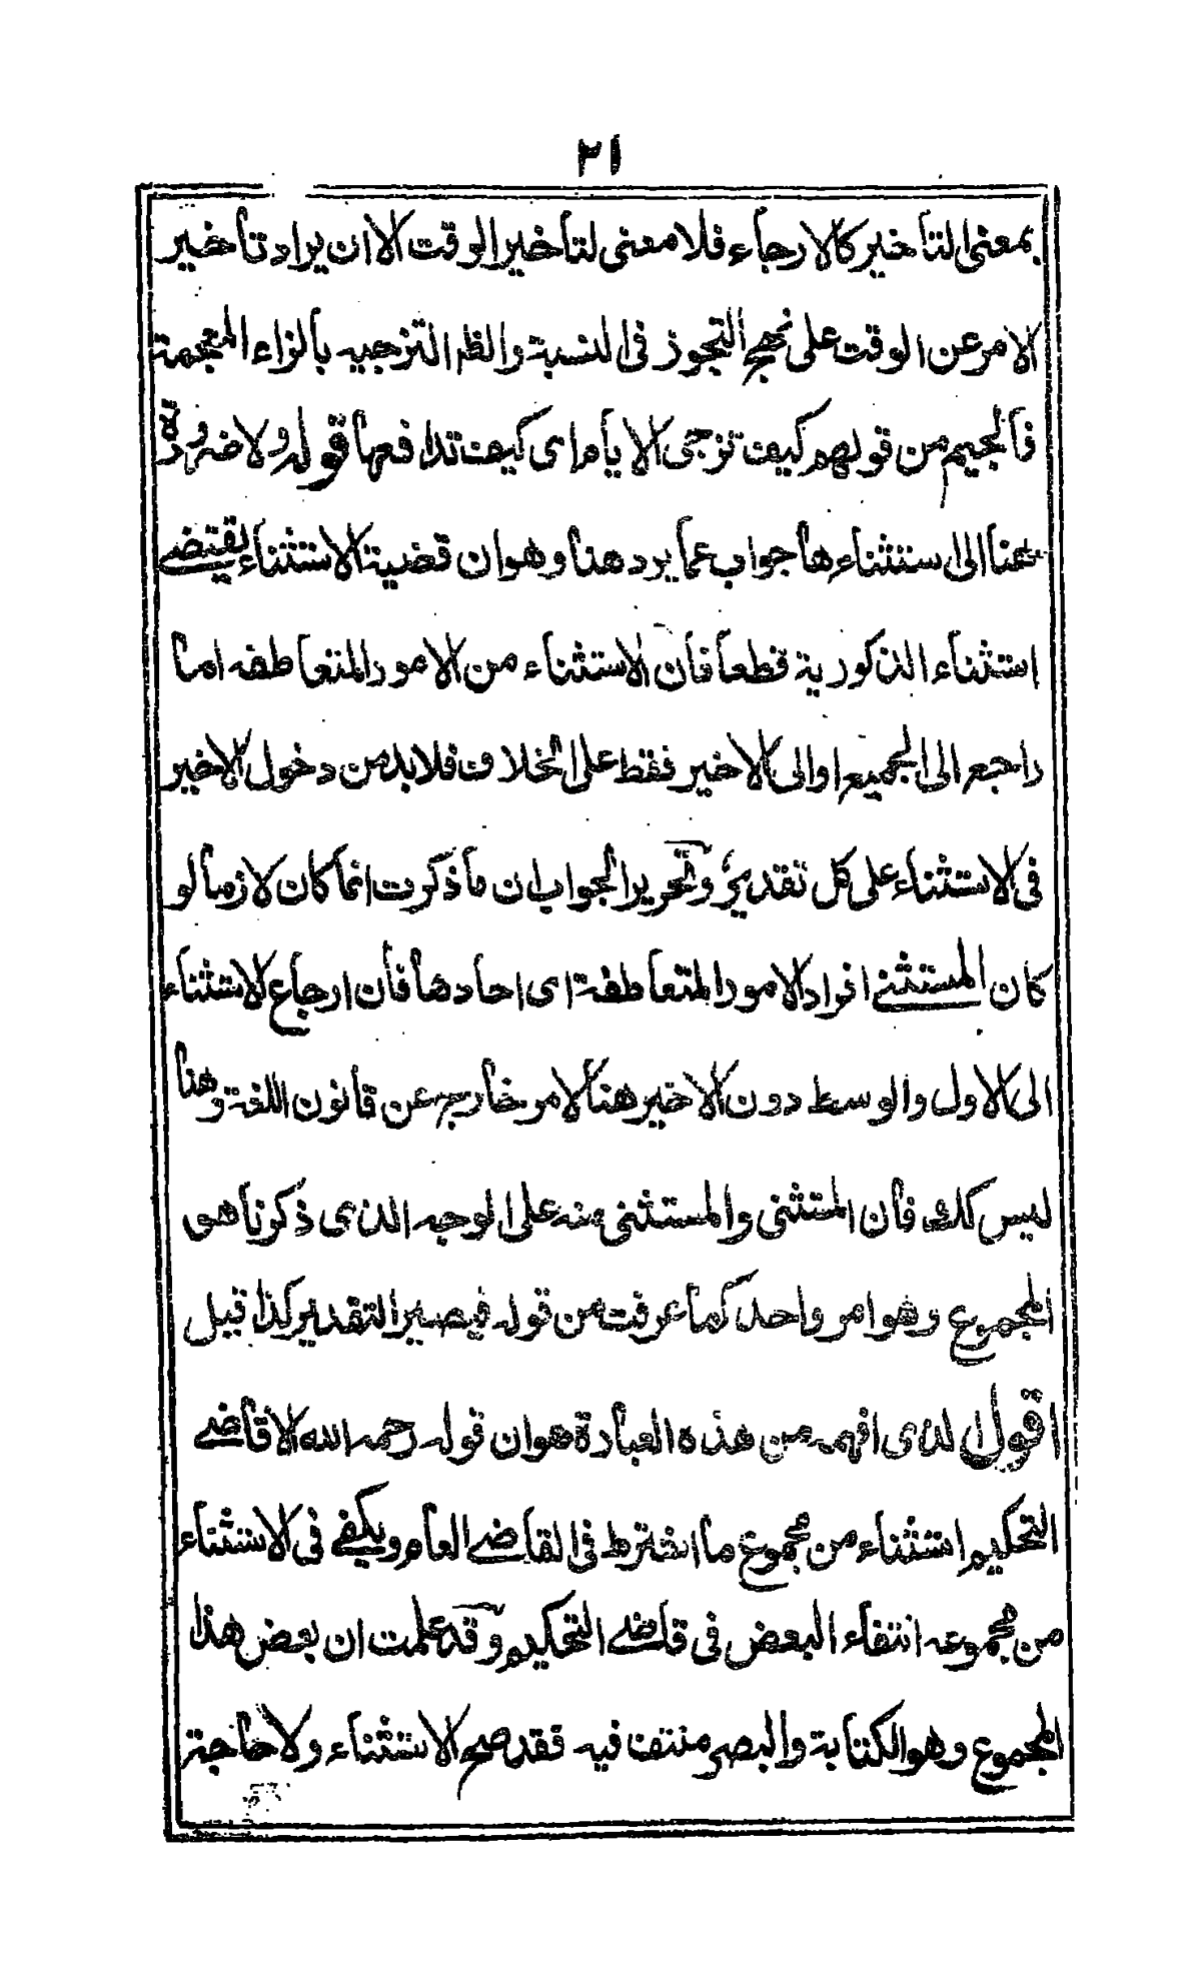 ٢١
بمعنى التأخير كالارجاء فلا معنى لتأخير الوقت الا ان يراد تأخير
الامر عن الوقت على نهج التجوز فى النسبة والظم التزجيه بالزاء المعجمة
فالجيم من قولهم كيف تزجى الايام اى كيف تدافعها قوله ولا ضرورة
هنا الى استثناءها جواب عما يرد هنا وهو ان قضية الاستثناء يقتضے
استثناء الذكورية قطعا فان الاستثناء من الامور المتعاطفه اما
راجع الى الجميع او الى الاخير فقط على الخلاف فلا بد من دخول الاخير
فى الاستثناء على كل تقدير وتحرير الجواب ان ما ذكرت انما كان لازما لو
كان المستثنے افراد الامور المتعاطفة اى احادها فان ارجاع الاستثناء
الى الاول والوسط دون الاخير هنا لامر خارج عن قانون اللغة وهنا
ليس كك فان المستثنى والمستثنى منه على الوجه الذى ذكرنا هو
المجموع وهو امر واحد كما عرفت من قوله فيصير التقدير كذا قيل
اقول الذى افهمه من هذه العبارة هو ان قوله رحمه الله الا قاضے
التحكيم استثناء من مجموع ما اشترط فى القاضے العام ويكفے فى الاستثناء
من مجموعه انتفاء البعض فى قاضے التحكيم وقد علمت ان بعض هذا
المجموع وهو الكتابة والبصر منتف فيه فقد صح الاستثناء ولا حاجة